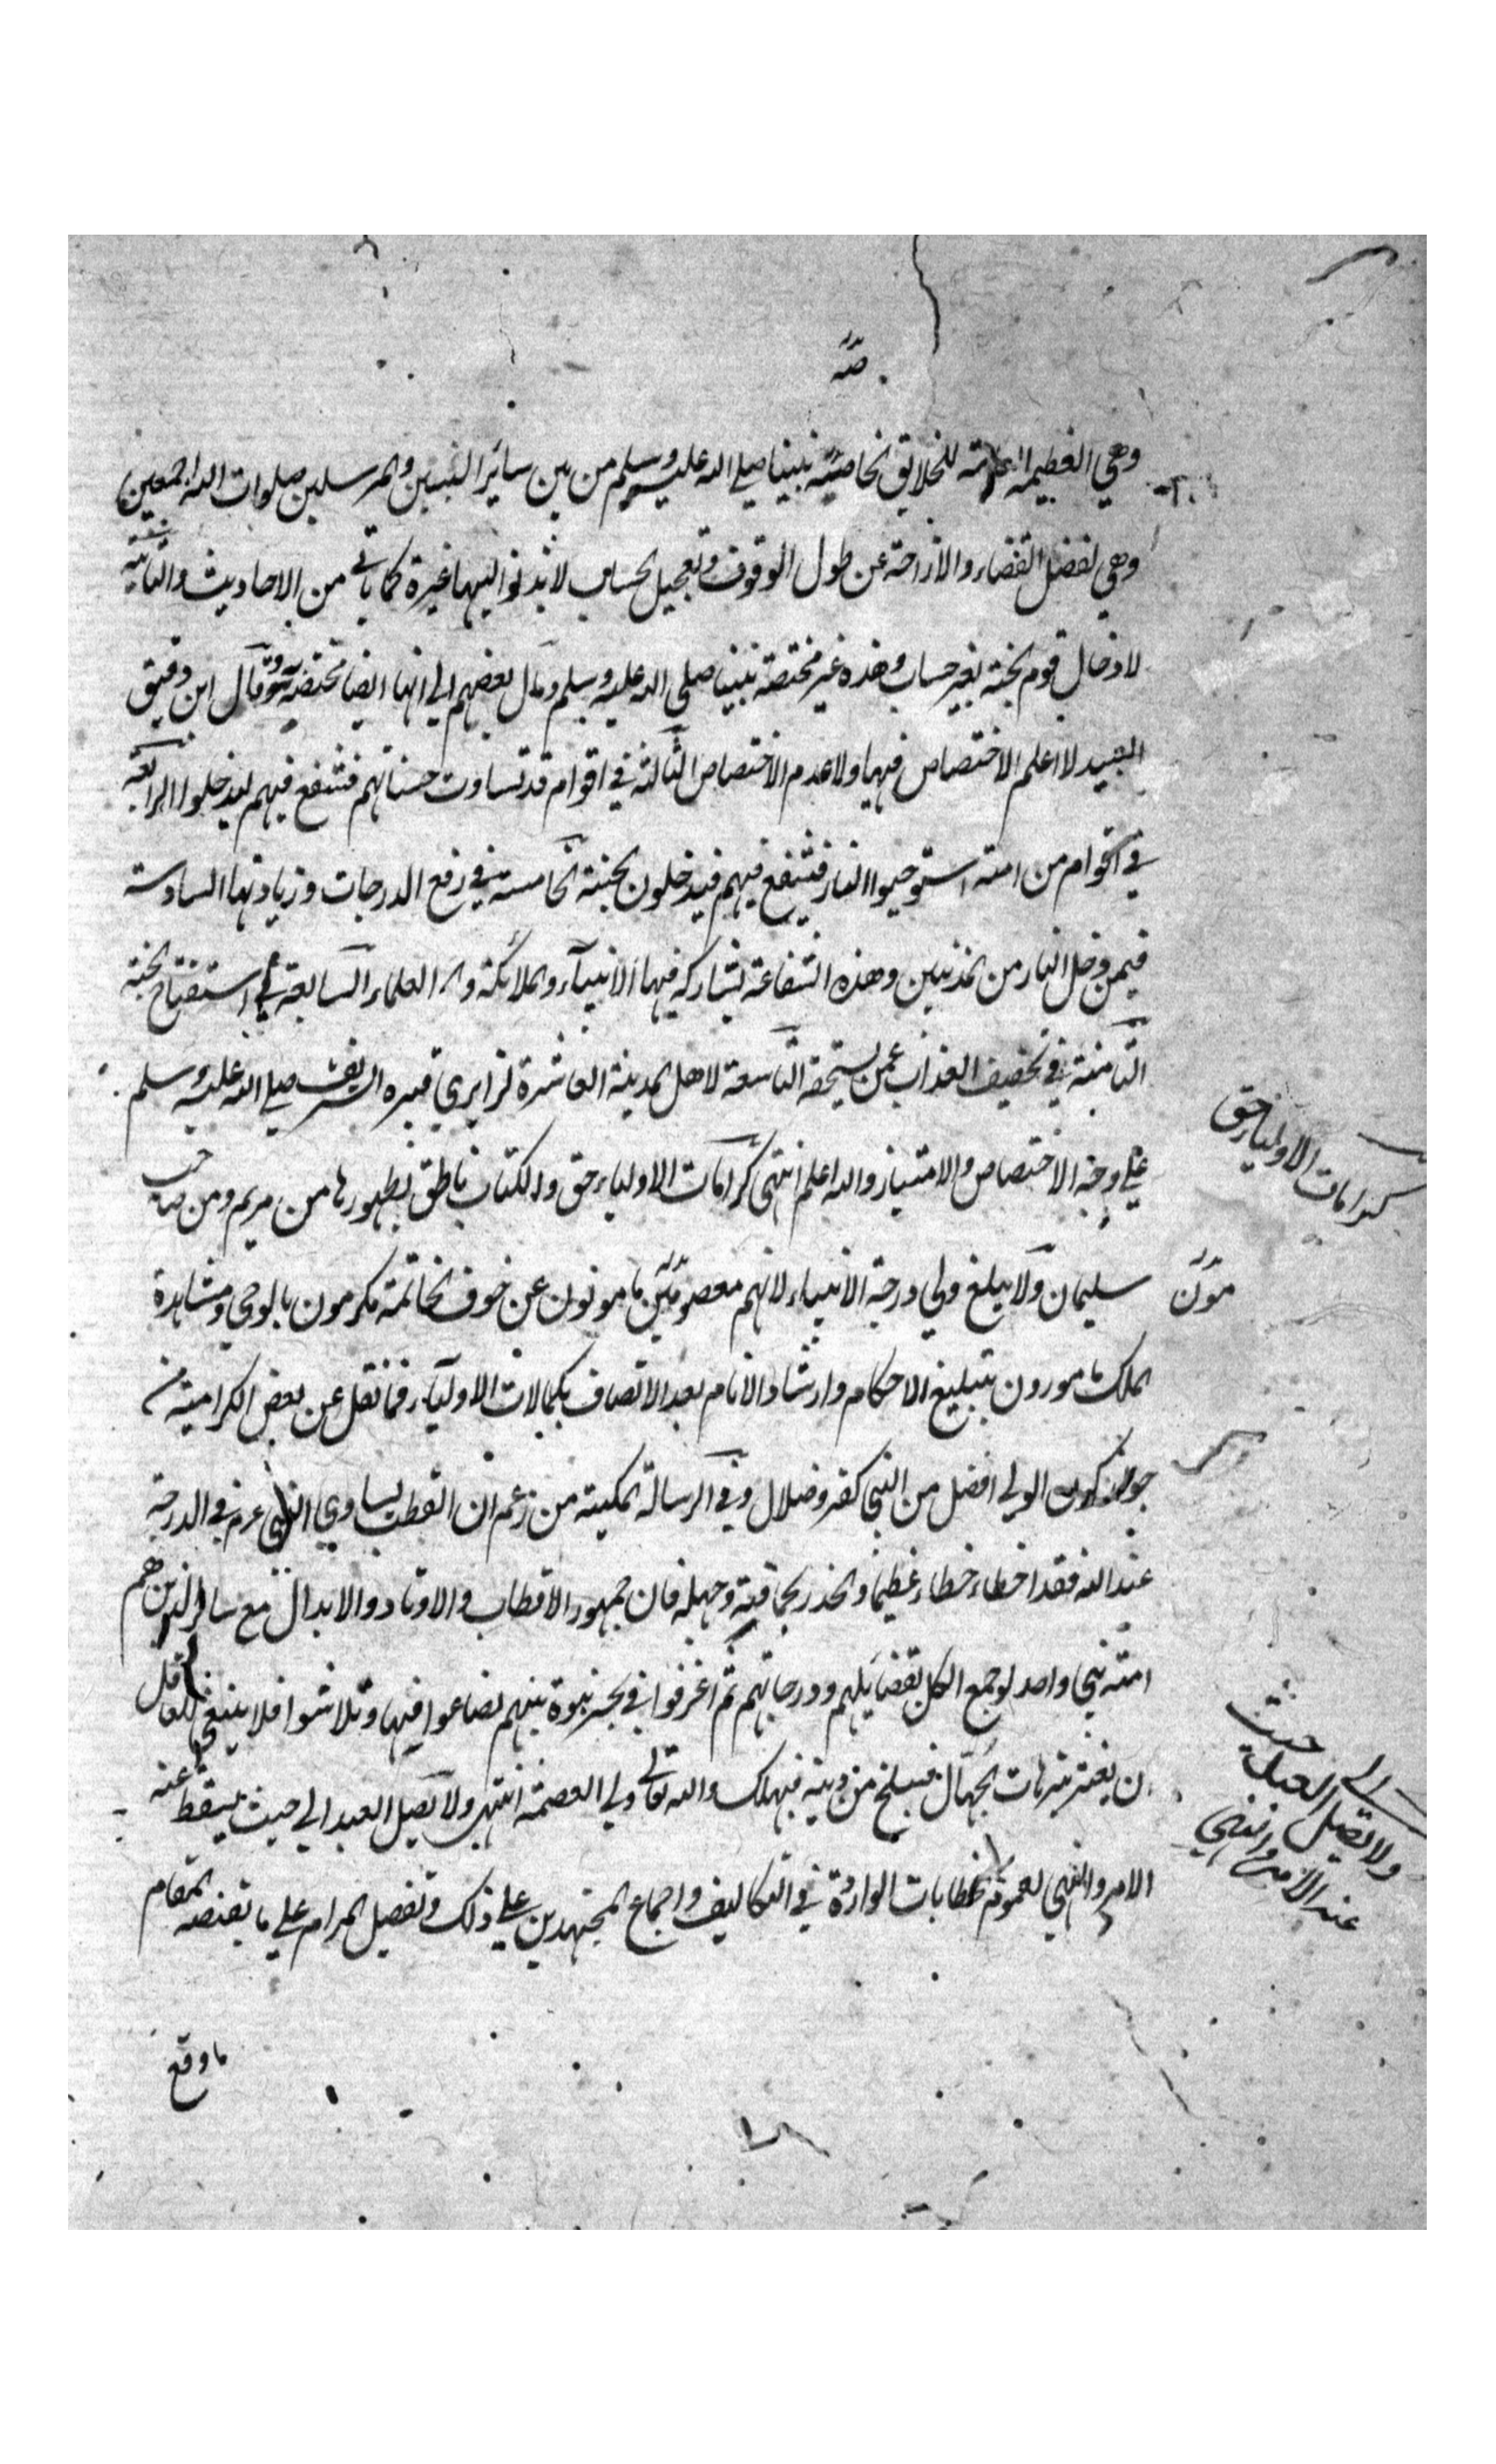 صه
وهي العظيمة العامة للخلايق الخاصة بنبينا صلي الله عليه وسلم من بين سائر النبيين والمرسلين صلوات الله اجمعين
وهي لفضل القضاء والازاحة عن طول الوقوف وتعجيل الحساب لا يدنوا اليها غيره كما ياتي من الاحاديث والثانية
لادخال قوم الجنة بغير حساب وهذه غير مختصة بنبينا صلي الله عليه وسلم ومال بعضهم الي انها ايضا مختصة وقال ابن دقيق
العيد لا اعلم الاختصاص فيها ولا عدم الاختصاص الثالثة في اقوام قد تساوت حسناتهم فتشفع فيهم ليدخلوا الرابعة
في اقوام من امته استوجبوا النار فتشفع فيهم فيدخلون الجنة الخامسة في رفع الدرجات وزيادتها السادسة
فيمن دخل النار من المذنبين وهذه الشفاعة يشاركه فيها الانبيآء والملائكة والعلماء السابعة في استفتاح الجنة
الثامنة في تخفيف العذاب عمن يستحقه التاسعة لاهل المدينة العاشرة لزايري قبره الشريف صلي الله عليه وسلم
علي وجه الاختصاص والامتياز والله اعلم انتهي كرامات الاولياء حق والكتاب ناطق بظهورها من مريم ومن صاحب
كرامات الاولياء حق
سليمان ولا يبلغ ولي درجة الانبياء لانهم معصومين مامونون عن خوف الخاتمة مكرمون بالوحي ومشاهدة
مون
الملك مامورون بتبليغ الاحكام وارشاد الانام بعد الاتصاف بكمالات الاوليآء فما نقل عن بعض الكرامية من
جواز كون الولي افضل من النبي كفر وضلال وفي الرسالة المكية من زعم ان القطب يساوي النبي عم في الدرجة
عند الله فقد اخطاء خطاء عظيما والحذر بحماقته وجهله فان جمهور الاقطاب والاوتاد والابدال مع سائر الذين هم
امته نبي واحد لو جمع الكل بفضايلهم ودرجاتهم ثم اغرقوا في بحر نبوة نبيهم لضاعوا فيها وتلاشوا فلا ينبغي للعاقل
ان يغتر بترهات الجهال فينسلخ من دينه فيهلك والله تعالي ولي العصمة انتهي ولا يصل العبد الي حيث يسقط عنه
ولا يصل العبد الي حيث
عنه الامر والنهي
الامر والنهي لعموم الخطابات الواردة في التكاليف واجماع المجتهدين علي ذلك وتفصيل المرام علي ما يقتضيه المقام
ما وقع